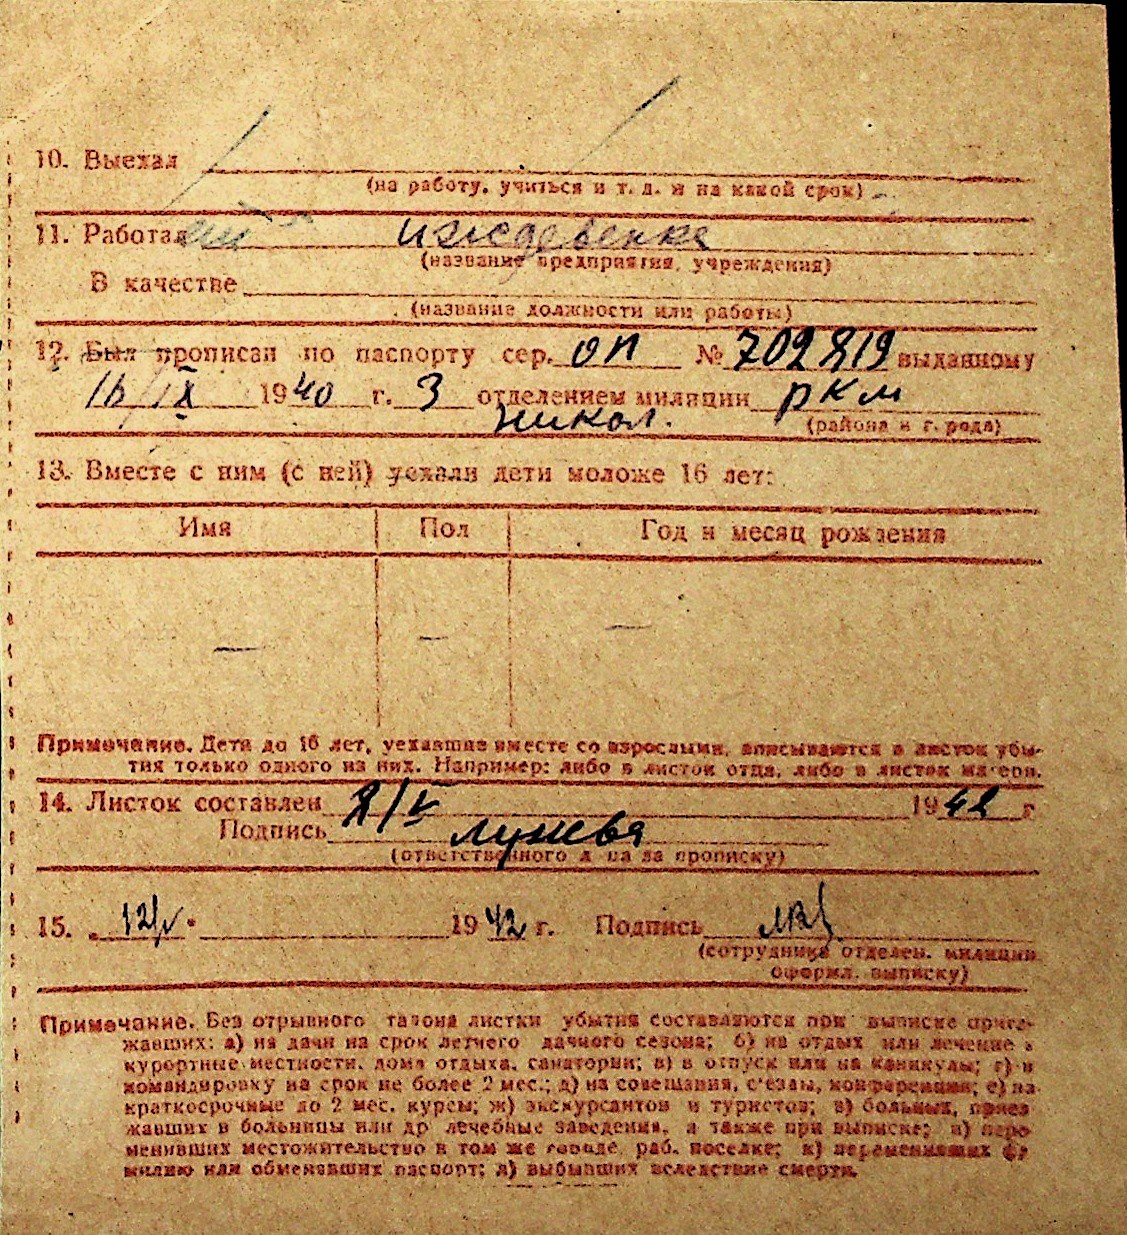 10. Выехал
(на работу, учиться и т. д. и на какой срок)
11. Работал иждевенка
(название предприятия, учреждения)
В качестве
(название должности или работы)
12. Был прописан по паспорту сер. ОП № 702819 выданному
16/IX 1940 г. 3 отделением милиции РКМ
никол. (района и города)
13. Вместе с ним (с ней) уехали дети моложе 16 лет:
Имя Пол Год и месяц рождения
— — —
Примечание. Дети до 16 лет, уехавшие вместе со взрослыми, вписываются в листок убы-
тия только одного из них. Например: либо в листок отца, либо в листок матери.
14. Листок составлен 8/V 1942 г
Подпись
(ответственного лица за прописку)
15. 12/V 1942 г. Подпись
(сотрудника отделен. милиции
оформл. выписку)
Примечание. Без отрывного талона листки убытия составляются при выписке приез-
жавших: а) на дачи на срок летнего дачного сезона; б) на отдых или лечение в
курортные местности, дома отдыха, санатории; в) в отпуск или на каникулы; г) в
командировку на срок не более 2 мес.; д) на совещания, с'езды, конференции; е) на
краткосрочные до 2 мес. курсы; ж) экскурсантов и туристов; з) больных, приез
жавших в больницы или др лечебные заведения, а также при выписке; и) пере-
менивших местожительство в том же городе, раб. поселке; к) переменивших фа
милию или обменявших паспорт; л) выбывших вследствие смерти.